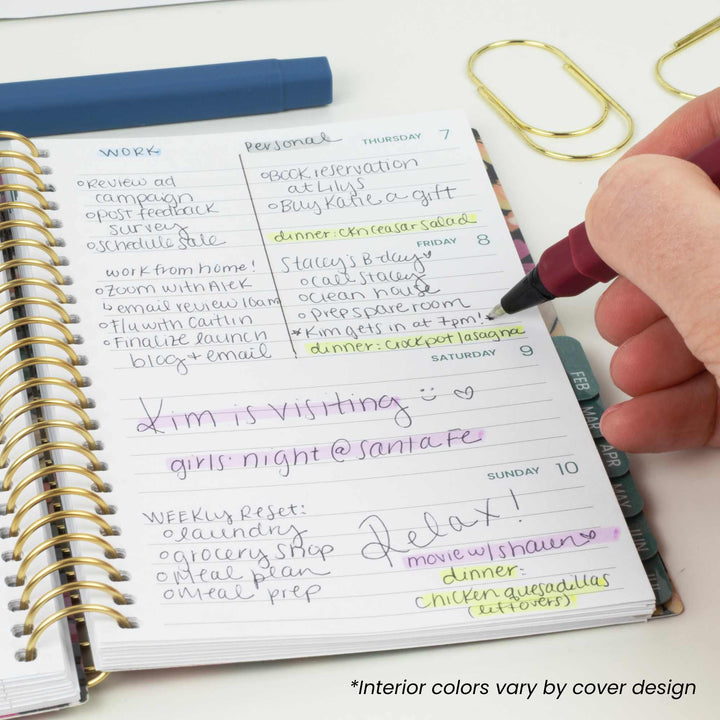 WORK
Personal
THURSDAY 7
Review ad
campaign
Post feedback
survey
Schedule sale
Book reservation
at Lilys
Buy Katie a gift
dinner: ckn ceasar salad
FRIDAY 8
work from home!
Zoom with Alek
email review 10am
F/u with Caitlin
Finalize launch
blog + email
Stacey's B-day
call Stacey
clean house
prep spare room
*Kim gets in at 7pm!*
dinner: crockpot lasagna
SATURDAY 9
Kim is visiting
girls' night @ Santa Fe
SUNDAY 10
WEEKLY Reset:
laundry
grocery shop
Meal plan
Meal prep
Relax!
movie w/ shaun
dinner:
chicken quesadillas
(leftovers)
FEB
MAR
APR
MAY
JUN
*Interior colors vary by cover design